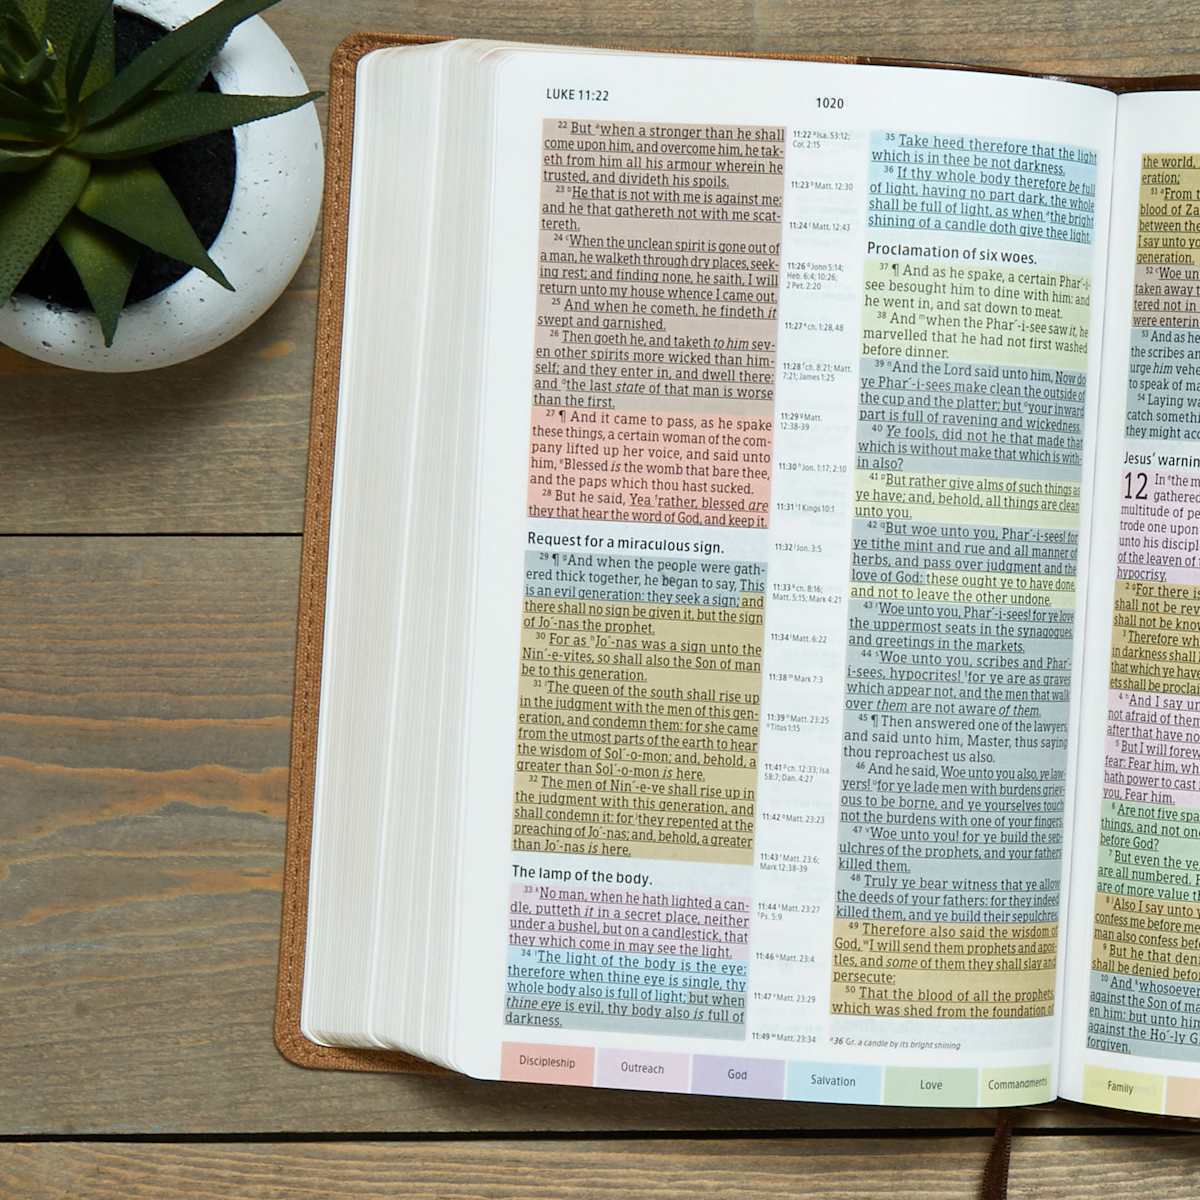 LUKE 11:22
1020
22 But ᵃwhen a stronger than he shall
come upon him, and overcome him, he tak-
eth from him all his armour wherein he
trusted, and divideth his spoils.
23 ᵇHe that is not with me is against me:
and he that gathereth not with me scat-
tereth.
24 ᶜWhen the unclean spirit is gone out of
a man, he walketh through dry places, seek-
ing rest; and finding none, he saith, I will
return unto my house whence I came out.
25 And when he cometh, he findeth it
swept and garnished.
26 Then goeth he, and taketh to him sev-
en other spirits more wicked than him-
self; and they enter in, and dwell there:
and ᵈthe last state of that man is worse
than the first.
27 ¶ And it came to pass, as he spake
these things, a certain woman of the com-
pany lifted up her voice, and said unto
him, ᵉBlessed is the womb that bare thee,
and the paps which thou hast sucked.
28 But he said, Yea ᶠrather, blessed are
they that hear the word of God, and keep it.
Request for a miraculous sign.
29 ¶ ᵍAnd when the people were gath-
ered thick together, he began to say, This
is an evil generation: they seek a sign; and
there shall no sign be given it, but the sign
of Jo´-nas the prophet.
30 For as ʰJo´-nas was a sign unto the
Nin´-e-vites, so shall also the Son of man
be to this generation.
31 ⁱThe queen of the south shall rise up
in the judgment with the men of this gen-
eration, and condemn them: for she came
from the utmost parts of the earth to hear
the wisdom of Sol´-o-mon; and, behold, a
greater than Sol´-o-mon is here.
32 The men of Nin´-e-ve shall rise up in
the judgment with this generation, and
shall condemn it: for ʲthey repented at the
preaching of Jo´-nas; and, behold, a greater
than Jo´-nas is here.
The lamp of the body.
33 ᵏNo man, when he hath lighted a can-
dle, putteth it in a secret place, neither
under a bushel, but on a candlestick, that
they which come in may see the light.
34 ˡThe light of the body is the eye:
therefore when thine eye is single, thy
whole body also is full of light; but when
thine eye is evil, thy body also is full of
darkness.
11:22 ᵃIsa. 53:12;
Col. 2:15
11:23 ᵇMatt. 12:30
11:24 ᶜMatt. 12:43
11:26 ᵈJohn 5:14;
Heb. 6:4; 10:26;
2 Pet. 2:20
11:27 ᵉch. 1:28, 48
11:28 ᶠch. 8:21; Matt.
7:21; James 1:25
11:29 ᵍMatt.
12:38-39
11:30 ʰJon. 1:17; 2:10
11:31 ⁱ1 Kings 10:1
11:32 ʲJon. 3:5
11:33 ᵏch. 8:16;
Matt. 5:15; Mark 4:21
11:34 ˡMatt. 6:22
11:38 ᵐMark 7:3
11:39 ⁿMatt. 23:25
ᵒTitus 1:15
11:41 ᵖch. 12:33; Isa.
58:7; Dan. 4:27
11:42 ᑫMatt. 23:23
11:43 ʳMatt. 23:6;
Mark 12:38-39
11:44 ˢMatt. 23:27
ᵗPs. 5:9
11:46 ᵘMatt. 23:4
11:47 ᵛMatt. 23:29
11:49 ʷMatt. 23:34
35 Take heed therefore that the light
which is in thee be not darkness.
36 If thy whole body therefore be full
of light, having no part dark, the whole
shall be full of light, as when *the bright
shining of a candle doth give thee light.
Proclamation of six woes.
37 ¶ And as he spake, a certain Phar´-i-
see besought him to dine with him: and
he went in, and sat down to meat.
38 And ᵐwhen the Phar´-i-see saw it, he
marvelled that he had not first washed
before dinner.
39 ⁿAnd the Lord said unto him, Now do
ye Phar´-i-sees make clean the outside of
the cup and the platter; but ᵒyour inward
part is full of ravening and wickedness.
40 Ye fools, did not he that made that
which is without make that which is with-
in also?
41 ᵖBut rather give alms of such things as
ye have; and, behold, all things are clean
unto you.
42 ᑫBut woe unto you, Phar´-i-sees! for
ye tithe mint and rue and all manner of
herbs, and pass over judgment and the
love of God: these ought ye to have done,
and not to leave the other undone.
43 ʳWoe unto you, Phar´-i-sees! for ye love
the uppermost seats in the synagogues,
and greetings in the markets.
44 ˢWoe unto you, scribes and Phar´-
i-sees, hypocrites! ᵗfor ye are as graves
which appear not, and the men that walk
over them are not aware of them.
45 ¶ Then answered one of the lawyers,
and said unto him, Master, thus saying
thou reproachest us also.
46 And he said, Woe unto you also, ye law-
yers! ᵘfor ye lade men with burdens griev-
ous to be borne, and ye yourselves touch
not the burdens with one of your fingers.
47 ᵛWoe unto you! for ye build the sep-
ulchres of the prophets, and your fathers
killed them.
48 Truly ye bear witness that ye allow
the deeds of your fathers: for they indeed
killed them, and ye build their sepulchres.
49 Therefore also said the wisdom of
God, ʷI will send them prophets and apos-
tles, and some of them they shall slay and
persecute:
50 That the blood of all the prophets,
which was shed from the foundation of
*36 Gr. a candle by its bright shining
Discipleship
Outreach
God
Salvation
Love
Commandments
the world,
eration;
51 ᵃFrom t
blood of Za
between the
I say unto yo
generation.
52 ᶻWoe un
taken away t
tered not in
were enterin
53 And as he
the scribes an
urge him vehe
to speak of ma
54 Laying wa
catch somethi
they might acc
Jesus' warnin
12 In ᵃthe m
gathered
multitude of pe
trode one upon
unto his discipl
of the leaven of
hypocrisy.
2 ᵍFor there is
shall not be rev
shall not be know
3 Therefore wh
in darkness shall
that which ye have
ets shall be proclai
4 ʰAnd I say un
not afraid of them
after that have no
5 But I will forew
fear: Fear him, wh
hath power to cast
you, Fear him.
6 Are not five spa
things, and not one
before God?
7 But even the ve
are all numbered. F
are of more value th
8 ⁱAlso I say unto
confess me before me
man also confess bef
9 But he that deni
shall be denied before
10 And ᵏwhosoever
against the Son of ma
en him: but unto him
against the Ho´-ly G
forgiven.
Family